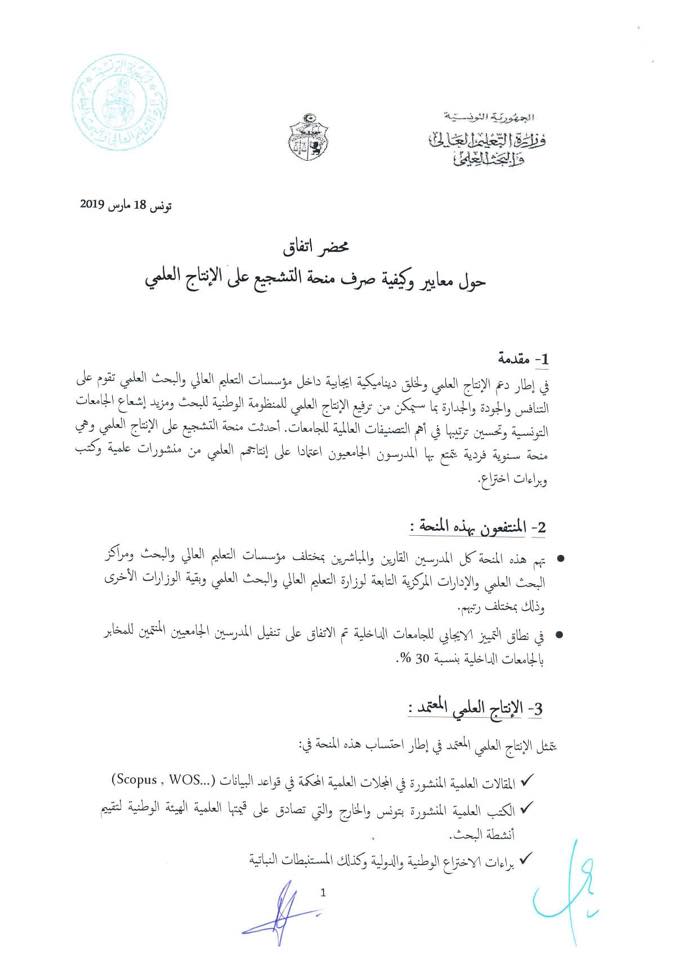 الجمهورية التونسية
وزارة التعليم العالي
والبحث العلمي
تونس 18 مارس 2019
محضر اتفاق
حول معايير وكيفية صرف منحة التشجيع على الإنتاج العلمي
1- مقدمة
في إطار دعم الإنتاج العلمي ولخلق ديناميكية ايجابية داخل مؤسسات التعليم العالي والبحث العلمي تقوم على
التنافس والجودة والجدارة بما سيمكن من ترفيع الإنتاج العلمي للمنظومة الوطنية للبحث ومزيد إشعاع الجامعات
التونسية وتحسين ترتيبها في أهم التصنيفات العالمية للجامعات. أحدثت منحة التشجيع على الإنتاج العلمي وهي
منحة سنوية فردية يتمتع بها المدرسون الجامعيون اعتمادا على إنتاجهم العلمي من منشورات علمية وكتب
وبراءات اختراع.
2- المنتفعون بهذه المنحة :
• تهم هذه المنحة كل المدرسين القارين والمباشرين بمختلف مؤسسات التعليم العالي والبحث ومراكز
البحث العلمي والإدارات المركزية التابعة لوزارة التعليم العالي والبحث العلمي وبقية الوزارات الأخرى
وذلك بمختلف رتبهم.
• في نطاق التمييز الايجابي للجامعات الداخلية تم الاتفاق على تنفيل المدرسين الجامعيين المنتمين للمخابر
بالجامعات الداخلية بنسبة 30 %.
3- الإنتاج العلمي المعتمد :
يتمثل الإنتاج العلمي المعتمد في إطار احتساب هذه المنحة في:
✓ المقالات العلمية المنشورة في المجلات العلمية المحكمة في قواعد البيانات (Scopus , WOS...)
✓ الكتب العلمية المنشورة بتونس والخارج والتي تصادق على قيمتها العلمية الهيئة الوطنية لتقييم
أنشطة البحث.
✓ براءات الاختراع الوطنية والدولية وكذلك المستنبطات النباتية
1